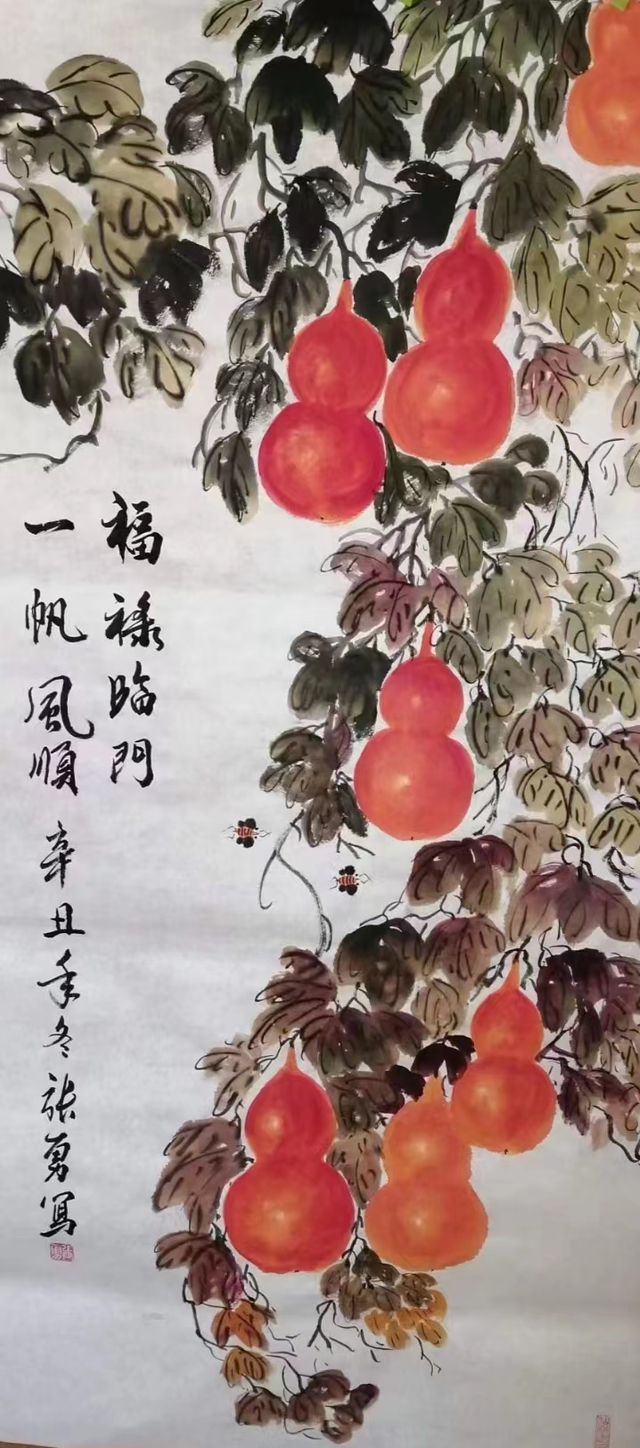 福禄臨門
一帆風順
辛丑年冬张勇寫